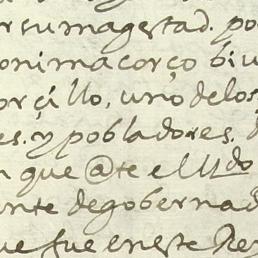 r su magestad. po
onima corço biu
orçillo, uno de los
es. y pobladores. d
n que @te el Ll^do
nte de gobernad
ue fue en este Rey